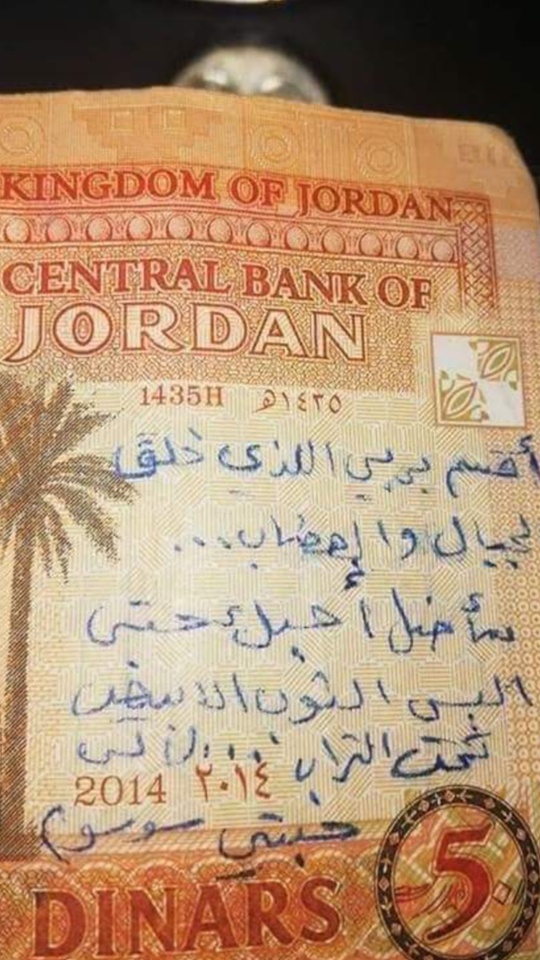 KINGDOM OF JORDAN
CENTRAL BANK OF
JORDAN
1435H ١٤٣٥هـ
أقسم بربي اللذي خلق
لجبال والهضاب...
سأضل أحبك حتى
البس الثوب الابيض
تحت التراب ...
2014 ٢٠١٤
حبيبتي سوسو
DINARS 5